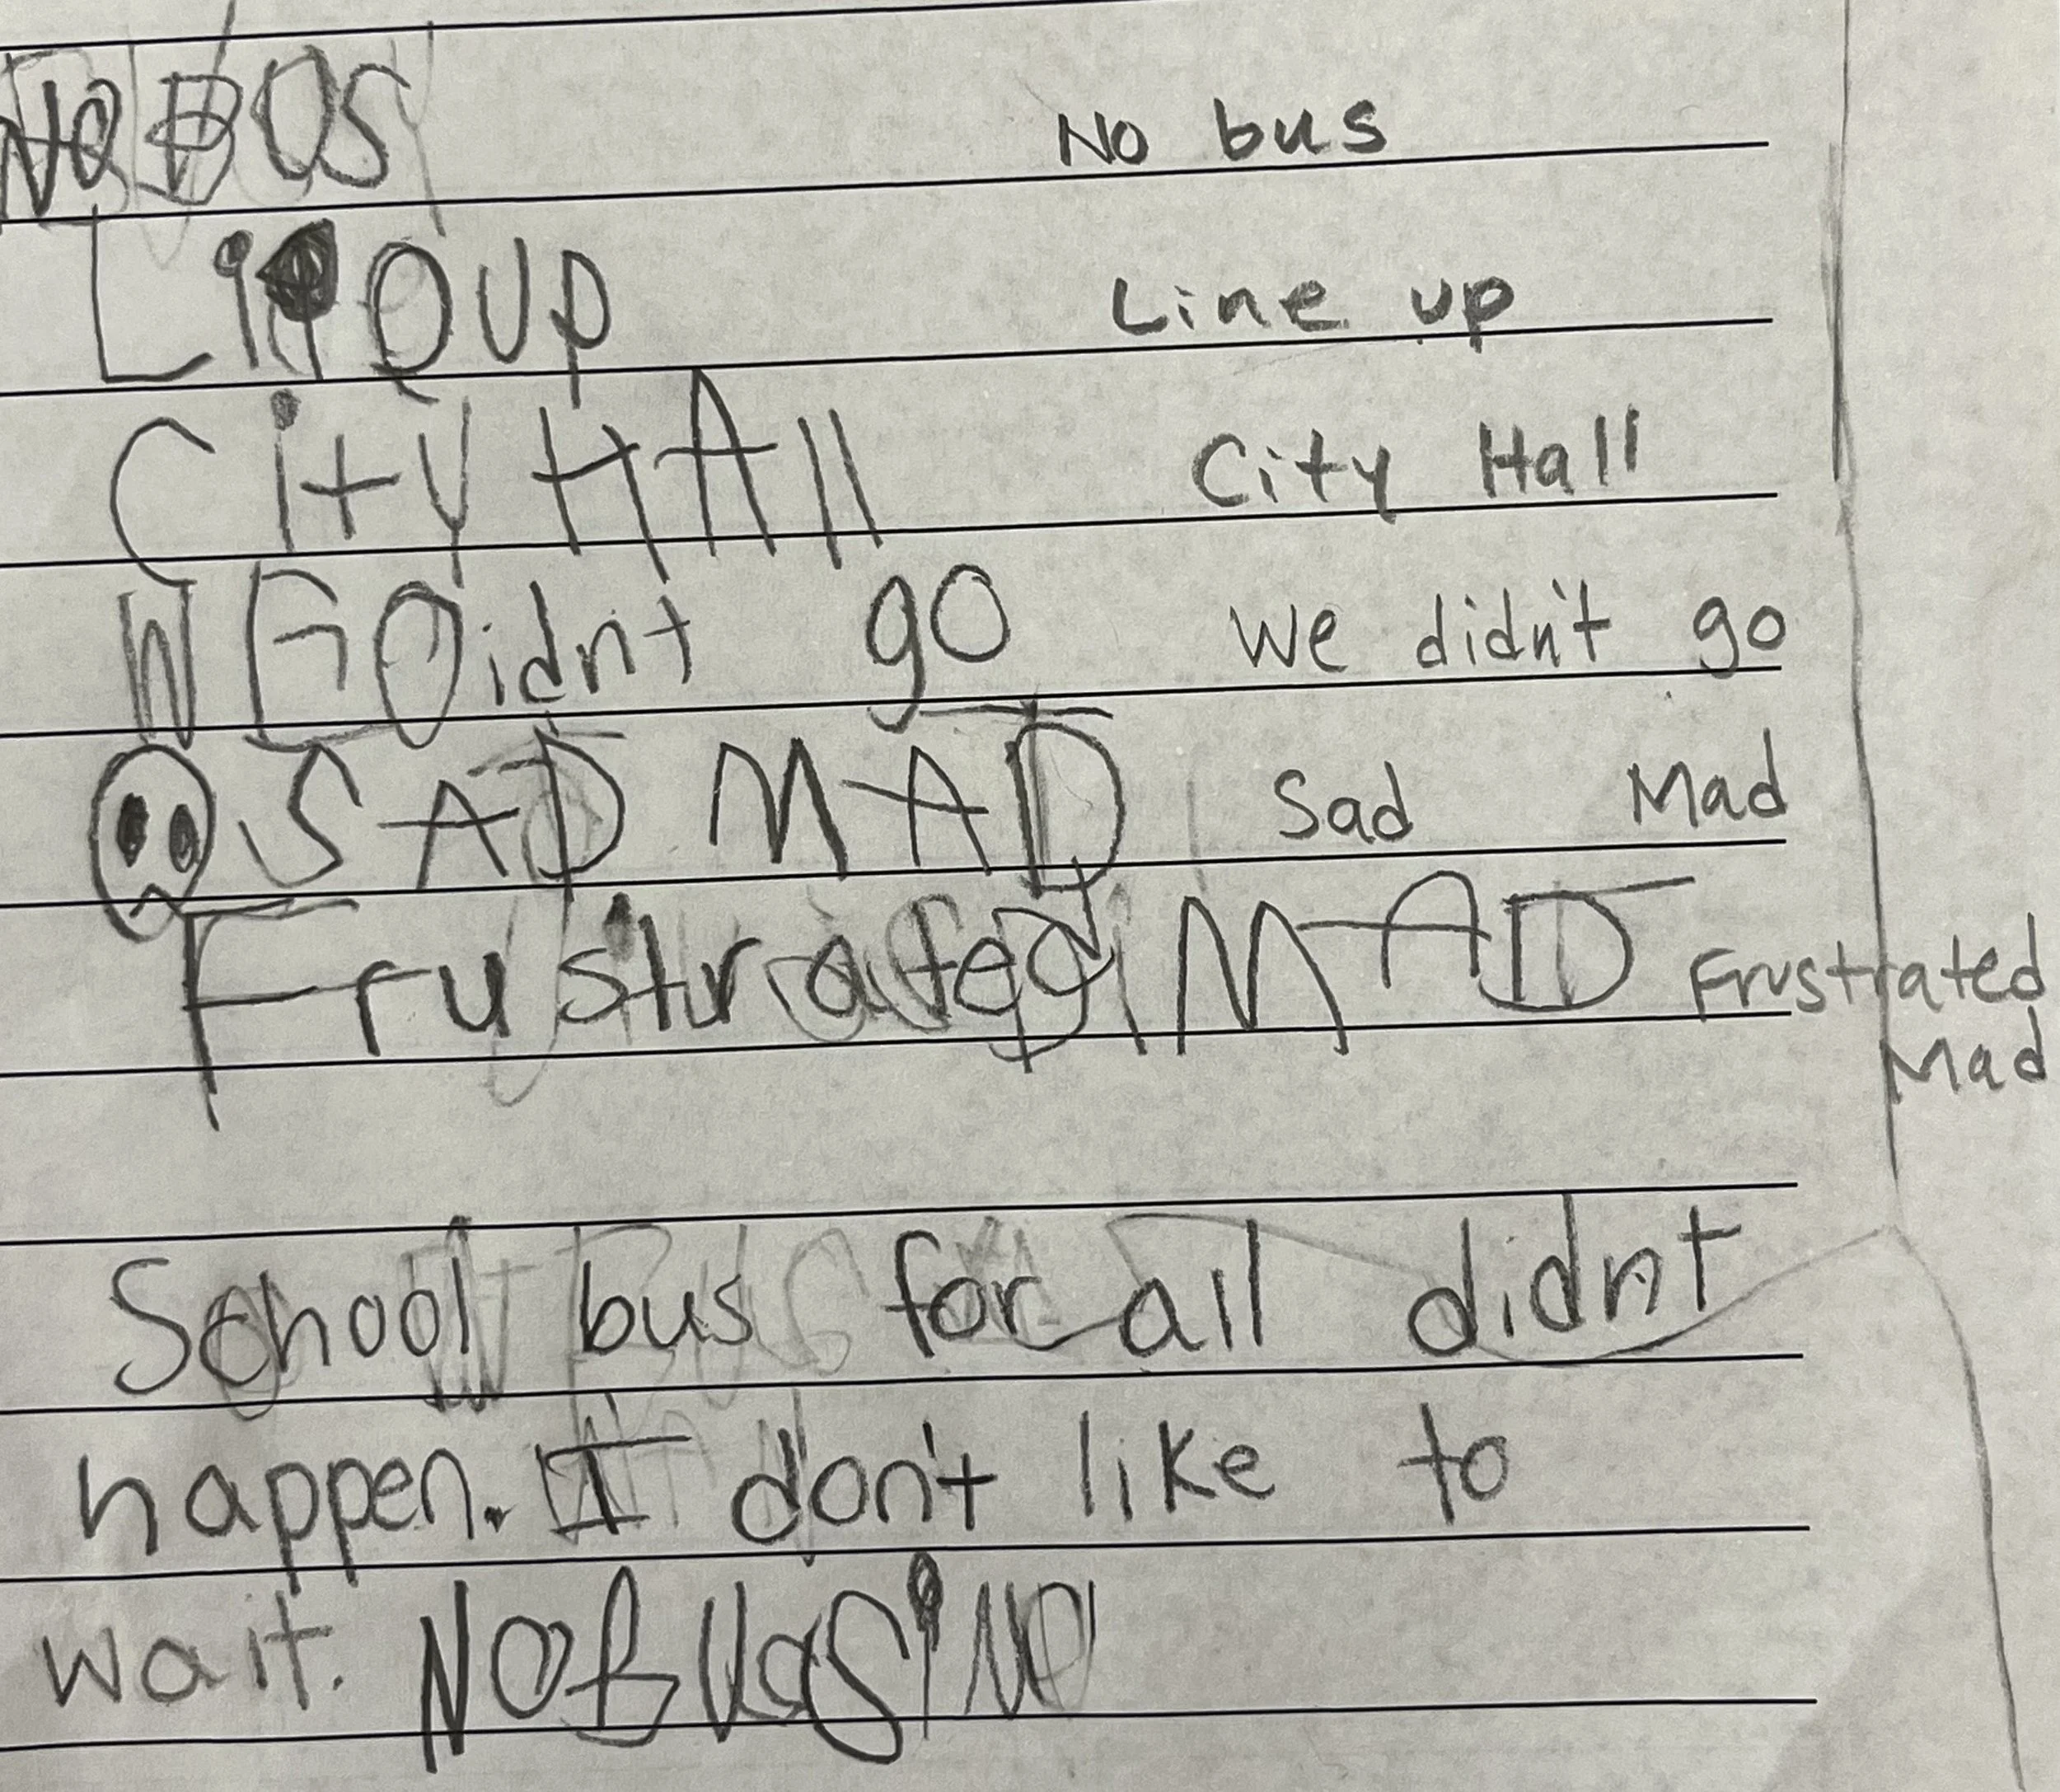 NO BUS No bus
Line up Line up
City HAll City Hall
WE Didnt go We didn't go
SAD MAD Sad Mad
Frustrated MAD Frustrated
Mad
School bus for all didnt
happen. I don't like to
wait. NO BUS NO